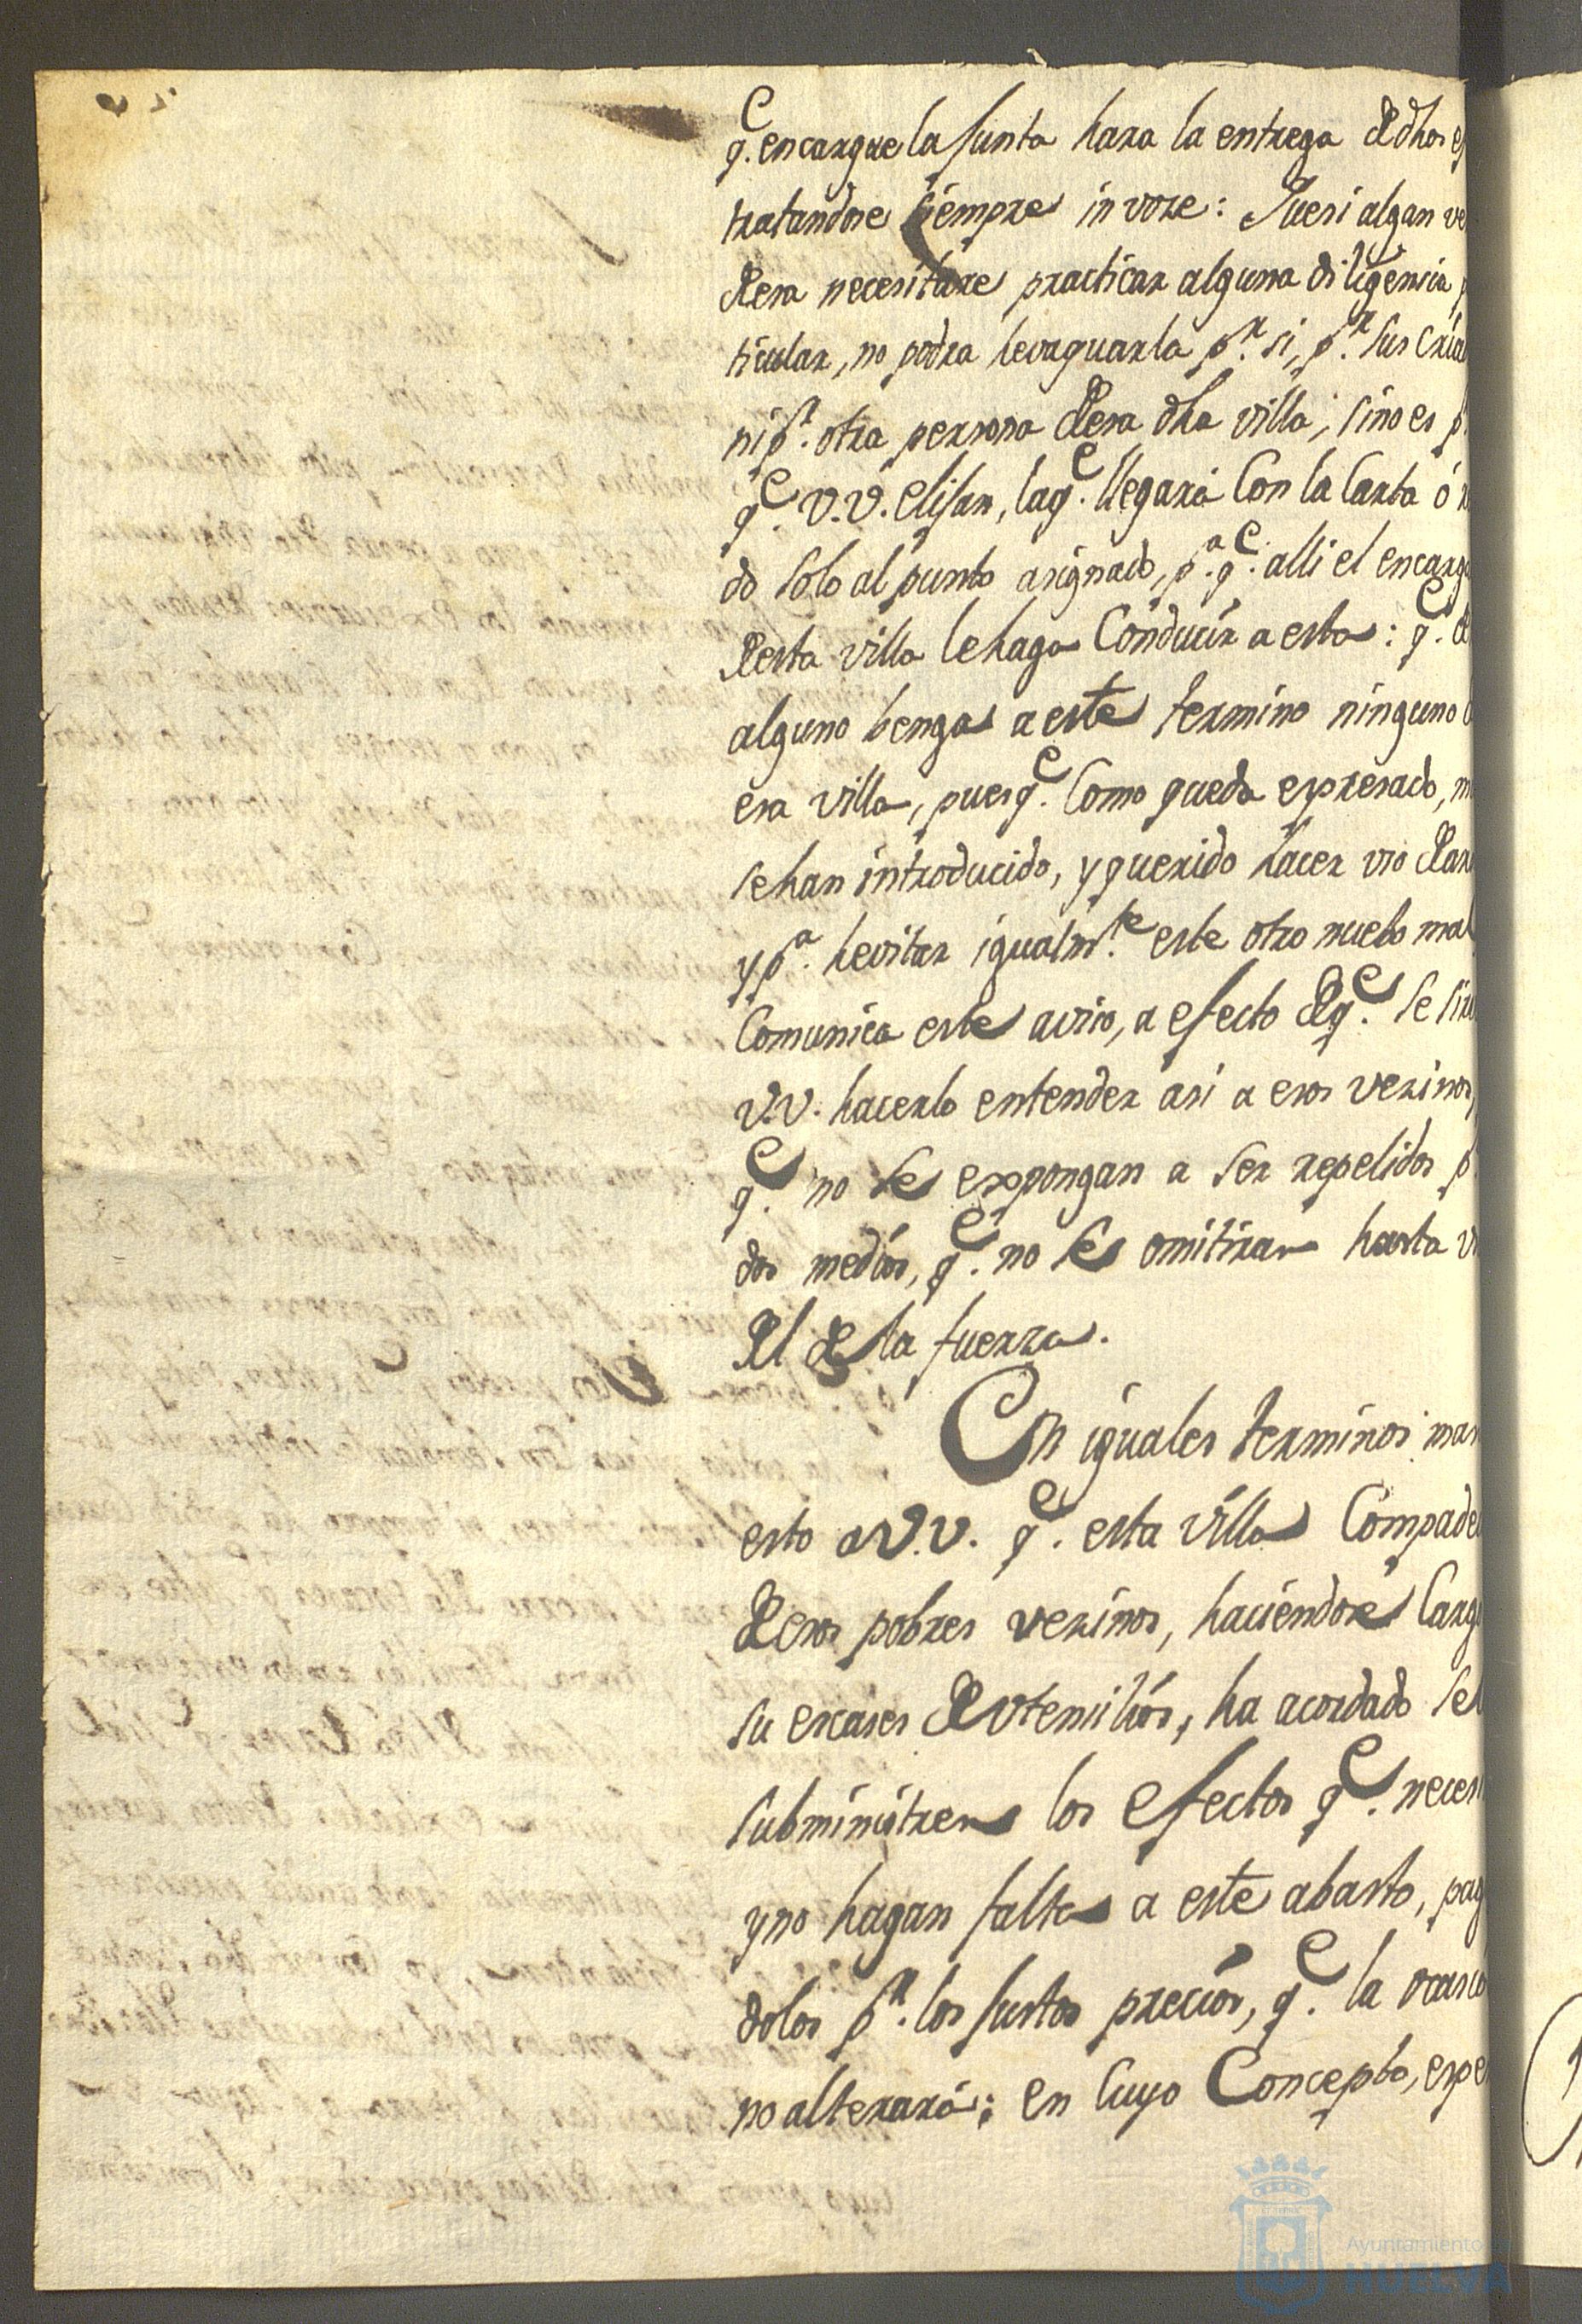 q.e encargue la Junta hara la entrega de dhos
tratandose siempre in voze: Pues si algun
de esa necesitare practicar alguna diligencia
ticular, no podra hevaquarla p.r si, p.r sus
ni p.r otra persona de esa dha villa, sino es
q.e V.V. elijan, la q.e llegará con la Carta ó
do solo al punto asignado, p.a q.e alli el
de esta villa le haga Conducir a esta: q.e
alguno benga a este termino ninguno
esa villa, pues q.e Como queda expresado,
se han introducido, y querido hacer uso
y p.a hevitar igualm.te este otro nuebo mal
Comunica este aviso, a efecto de q.e se
V.V. hacerlo entender asi a esos vezinos,
q.e no se expongan a ser repelidos
dos medios, q.e no se omitiran hasta
el de la fuerza.
En iguales terminos
esto a V.V. q.e esta villa
de esos pobres vezinos, haciendose
su escases de utensilios, ha acordado
subministren los efectos q.e
y no hagan falta a este abasto,
dolos p.r los justos precios, q.e la
no alterará; en cuyo Concepto,
Ayuntamiento de
HUELVA